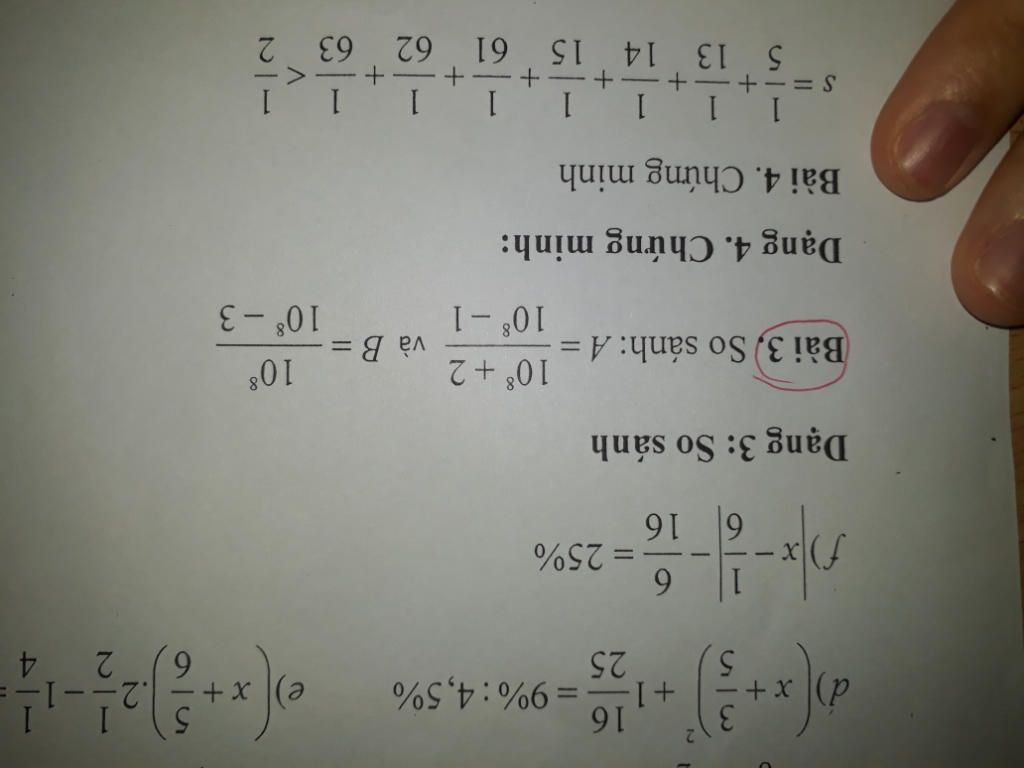 d) (x + 3/5)² + 1 16/25 = 9% : 4,5%    e) (x + 5/6).2 1/2 − 1 1/4 =
f) |x − 1/6| − 6/16 = 25%
Dạng 3: So sánh
Bài 3. So sánh: A = (10⁸ + 2)/(10⁸ − 1) và B = 10⁸/(10⁸ − 3)
Dạng 4. Chứng minh:
Bài 4. Chứng minh
s = 1/5 + 1/13 + 1/14 + 1/15 + 1/61 + 1/62 + 1/63 < 1/2